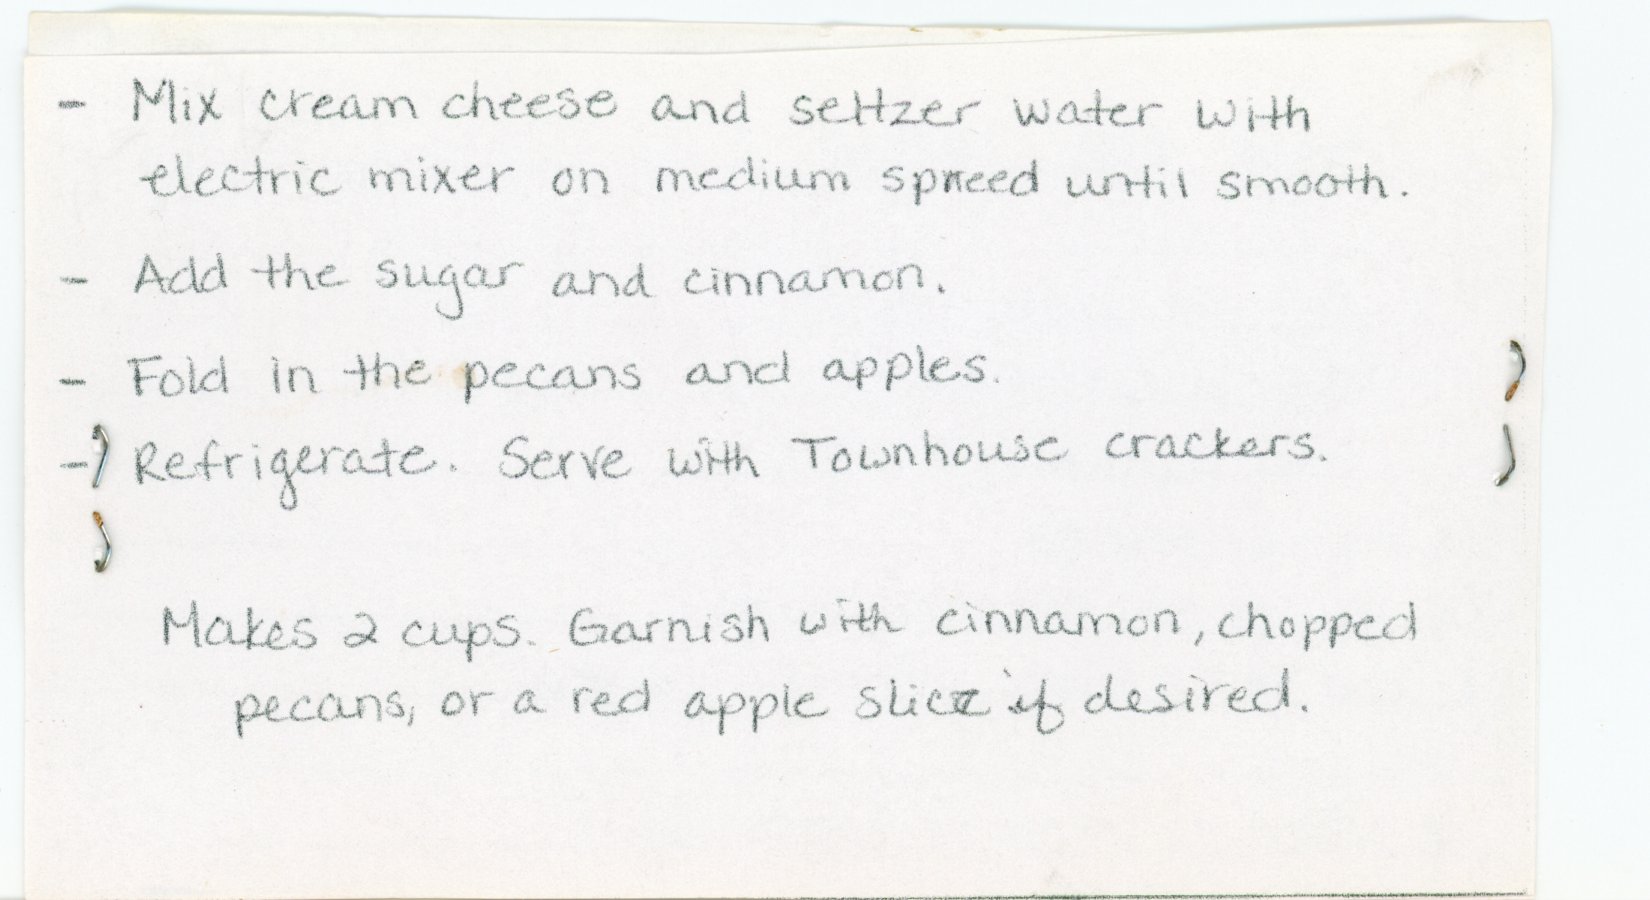 - Mix cream cheese and seltzer water with
electric mixer on medium spreed until smooth.
- Add the sugar and cinnamon.
- Fold in the pecans and apples.
- Refrigerate. Serve with Townhouse crackers.
Makes 2 cups. Garnish with cinnamon, chopped
pecans, or a red apple slice if desired.